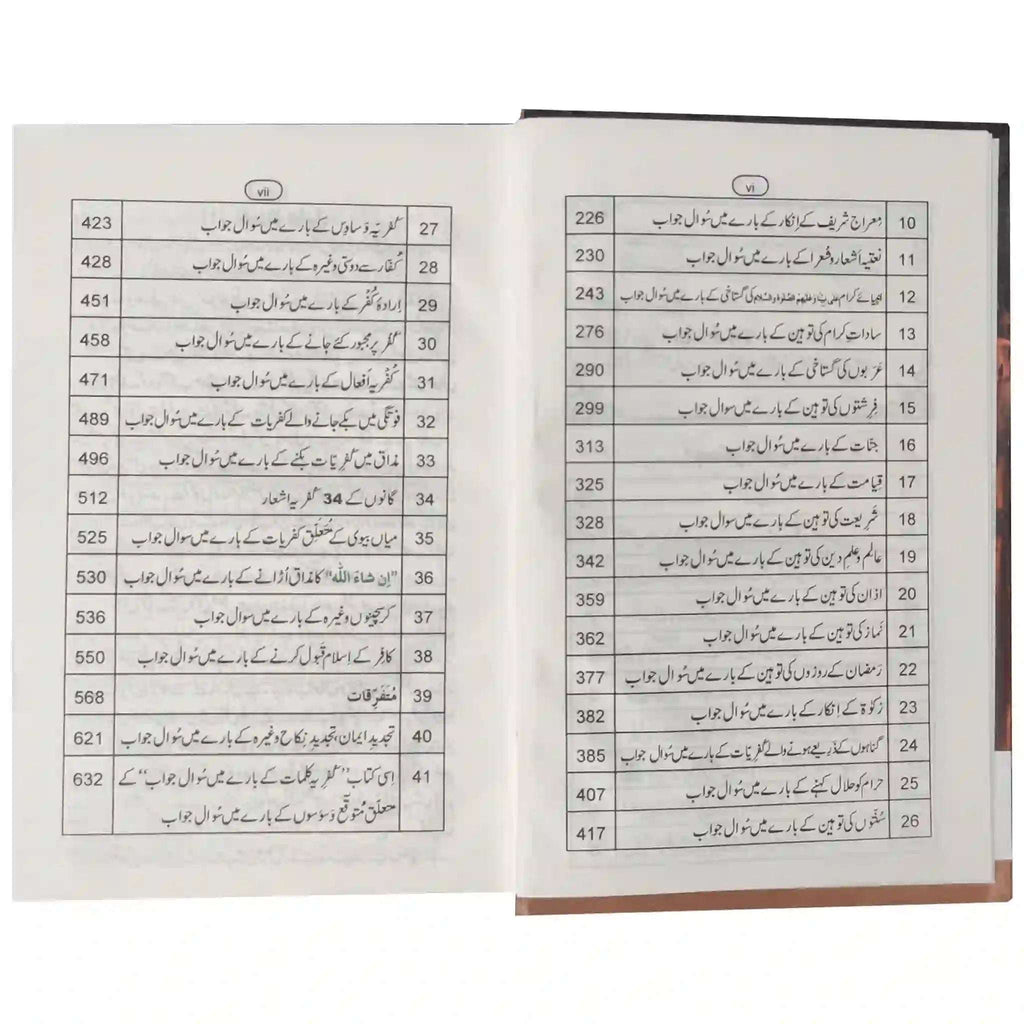 vi
10 معراج شریف کے اِنکار کے بارے میں سُوال جواب 226
11 نعتیہ اَشعار و شُعرا کے بارے میں سُوال جواب 230
12 انبیائے کرام علٰی نبیّنا وعلیہم الصلٰوۃ والسلام کی گستاخی کے بارے میں سُوال جواب 243
13 ساداتِ کرام کی توہین کے بارے میں سُوال جواب 276
14 عَرَبوں کی گستاخی کے بارے میں سُوال جواب 290
15 فِرِشتوں کی توہین کے بارے میں سوال جواب 299
16 جنّات کے بارے میں سُوال جواب 313
17 قِیامت کے بارے میں سُوال جواب 325
18 شَرِیعت کی توہین کے بارے میں سوال جواب 328
19 عالِم و علمِ دین کی توہین کے بارے میں سُوال جواب 342
20 اذان کی توہین کے بارے میں سُوال جواب 359
21 نَماز کی توہین کے بارے میں سُوال جواب 362
22 رَمضان کے روزوں کی توہین کے بارے میں سُوال جواب 377
23 زکوٰۃ کے اِنکار کے بارے میں سُوال جواب 382
24 گناہوں کے ذَرِیعے ہونے والے کُفرِیّات کے بارے میں سُوال جواب 385
25 حرام کو حلال کہنے کے بارے میں سُوال جواب 407
26 سُنّتوں کی توہین کے بارے میں سُوال جواب 417
vii
27 کُفرِیہ وَساوِس کے بارے میں سُوال جواب 423
28 کُفّار سے دوستی وغیرہ کے بارے میں سُوال جواب 428
29 اِرادۂ کُفْر کے بارے میں سُوال جواب 451
30 کُفْر پر مجبور کئے جانے کے بارے میں سُوال جواب 458
31 کُفْرِیہ اَفعال کے بارے میں سُوال جواب 471
32 فوتگی میں بکے جانے والے کفریات کے بارے میں سُوال جواب 489
33 مذاق میں کُفْرِیّات بکنے کے بارے میں سُوال جواب 496
34 گانوں کے 34 کُفْریہ اشعار 512
35 میاں بیوی کے مُتَعَلِّق کفریات کے بارے میں سوال جواب 525
36 "اِن شاءَ اللہ" کا مذاق اُڑانے کے بارے میں سُوال جواب 530
37 کرسچینوں وغیرہ کے بارے میں سوال جواب 536
38 کافِر کے اِسلام قَبول کرنے کے بارے میں سُوال جواب 550
39 مُتَفَرِّقات 568
40 تجدیدِ ایمان، تجدیدِ نِکاح وغیرہ کے بارے میں سُوال جواب 621
41 اِسی کتاب "کُفْرِیہ کلمات کے بارے میں سُوال جواب" کے 632
متعلق مُتوقّع وَسوسوں کے بارے میں سُوال جواب